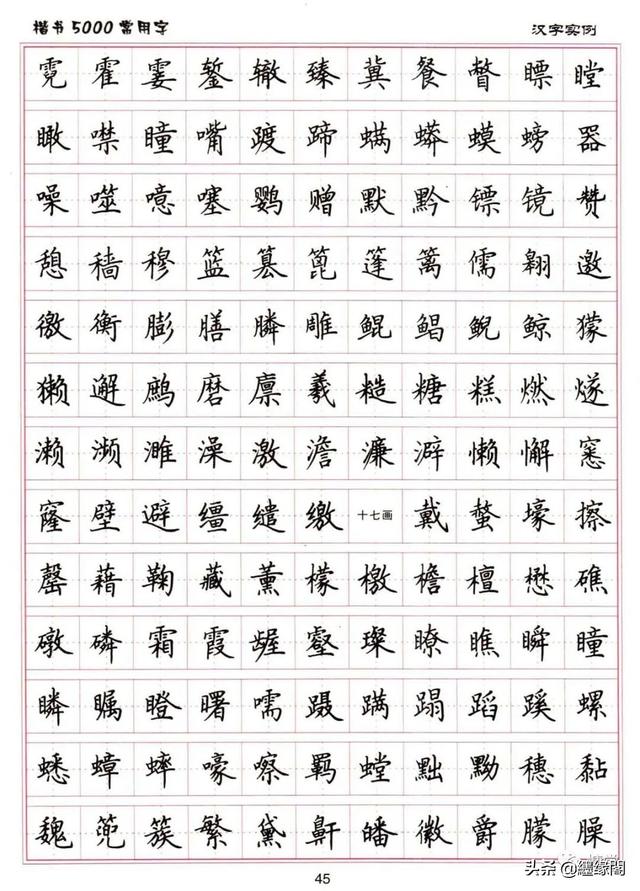 楷书5000常用字 汉字实例
霓霍霎錾辙臻冀餐瞥瞟瞠
瞰噤瞳嘴踱蹄蹒蟒蟆螃器
噪噬噫噻鹦赠默黔镖镜赞
憩穑穆篮篡篦篷篱儒翱邀
徼衡膨膳膦雕鲲鲳鲵鲸獴
獭邂鹧磨廪羲糙糖糕燃燧
濑濒濉澡激澹濂澼懒懈窸
窿壁避缰缱缴十七画戴螯壕擦
罄藉鞠藏薰檬檄檐檀懋礁
礅磷霜霞龌壑璨瞭瞧瞬瞳
瞵瞩瞪曙嚅蹑蹒蹋蹈蹊螺
蟋蟑蟀嚎嚓羁螳黜黝穗黏
魏篼簇繁黛鼾皤徽爵朦臊
45
头条@繾缘閣